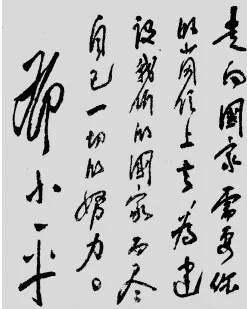 走向國家需要你
的崗位上去，為建
設我們的國家而尽
自己一切的努力。
邓小平